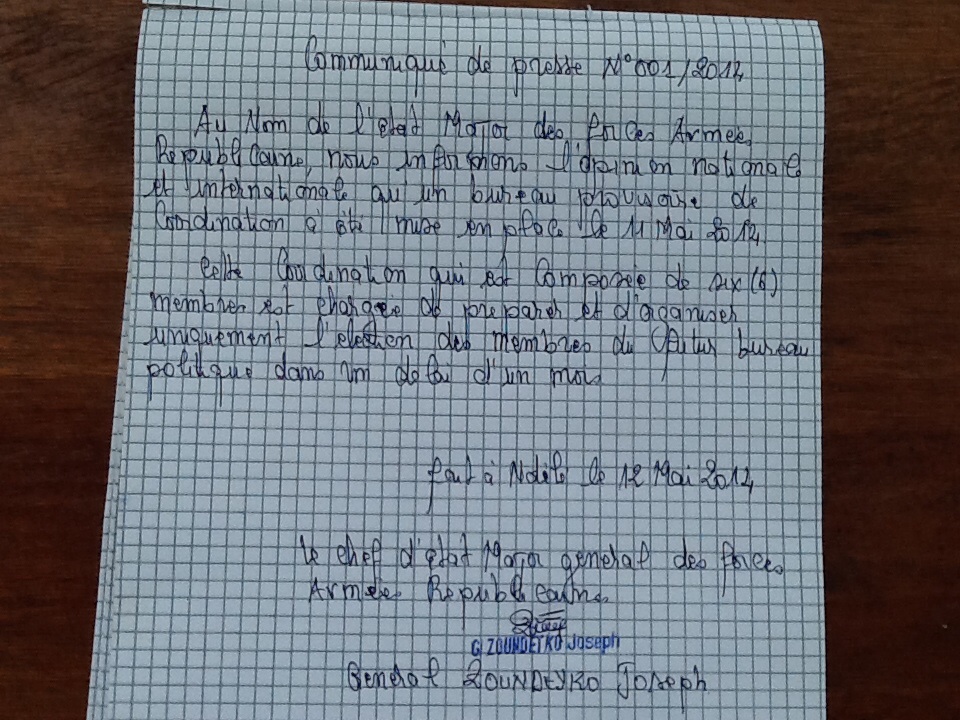 Communiqué de presse N°001/2014
Au Nom de l'etat Major des forces Armees
Republicaine, nous informons l'opinion nationale
et internationale qu'un bureau provisoire de
Coordination a été mise en place le 11 Mai 2014.
Cette Coordination qui est Composée de six (6)
membres est chargée de preparer et d'organiser
uniquement l'election des membres du futur bureau
politique dans un delai d'un mois.
fait à Ndélé le 12 Mai 2014
Le chef d'état Major general des forces
Armées Republicaine
G. ZOUNDETKO Joseph
General ZOUNDEYKO Joseph